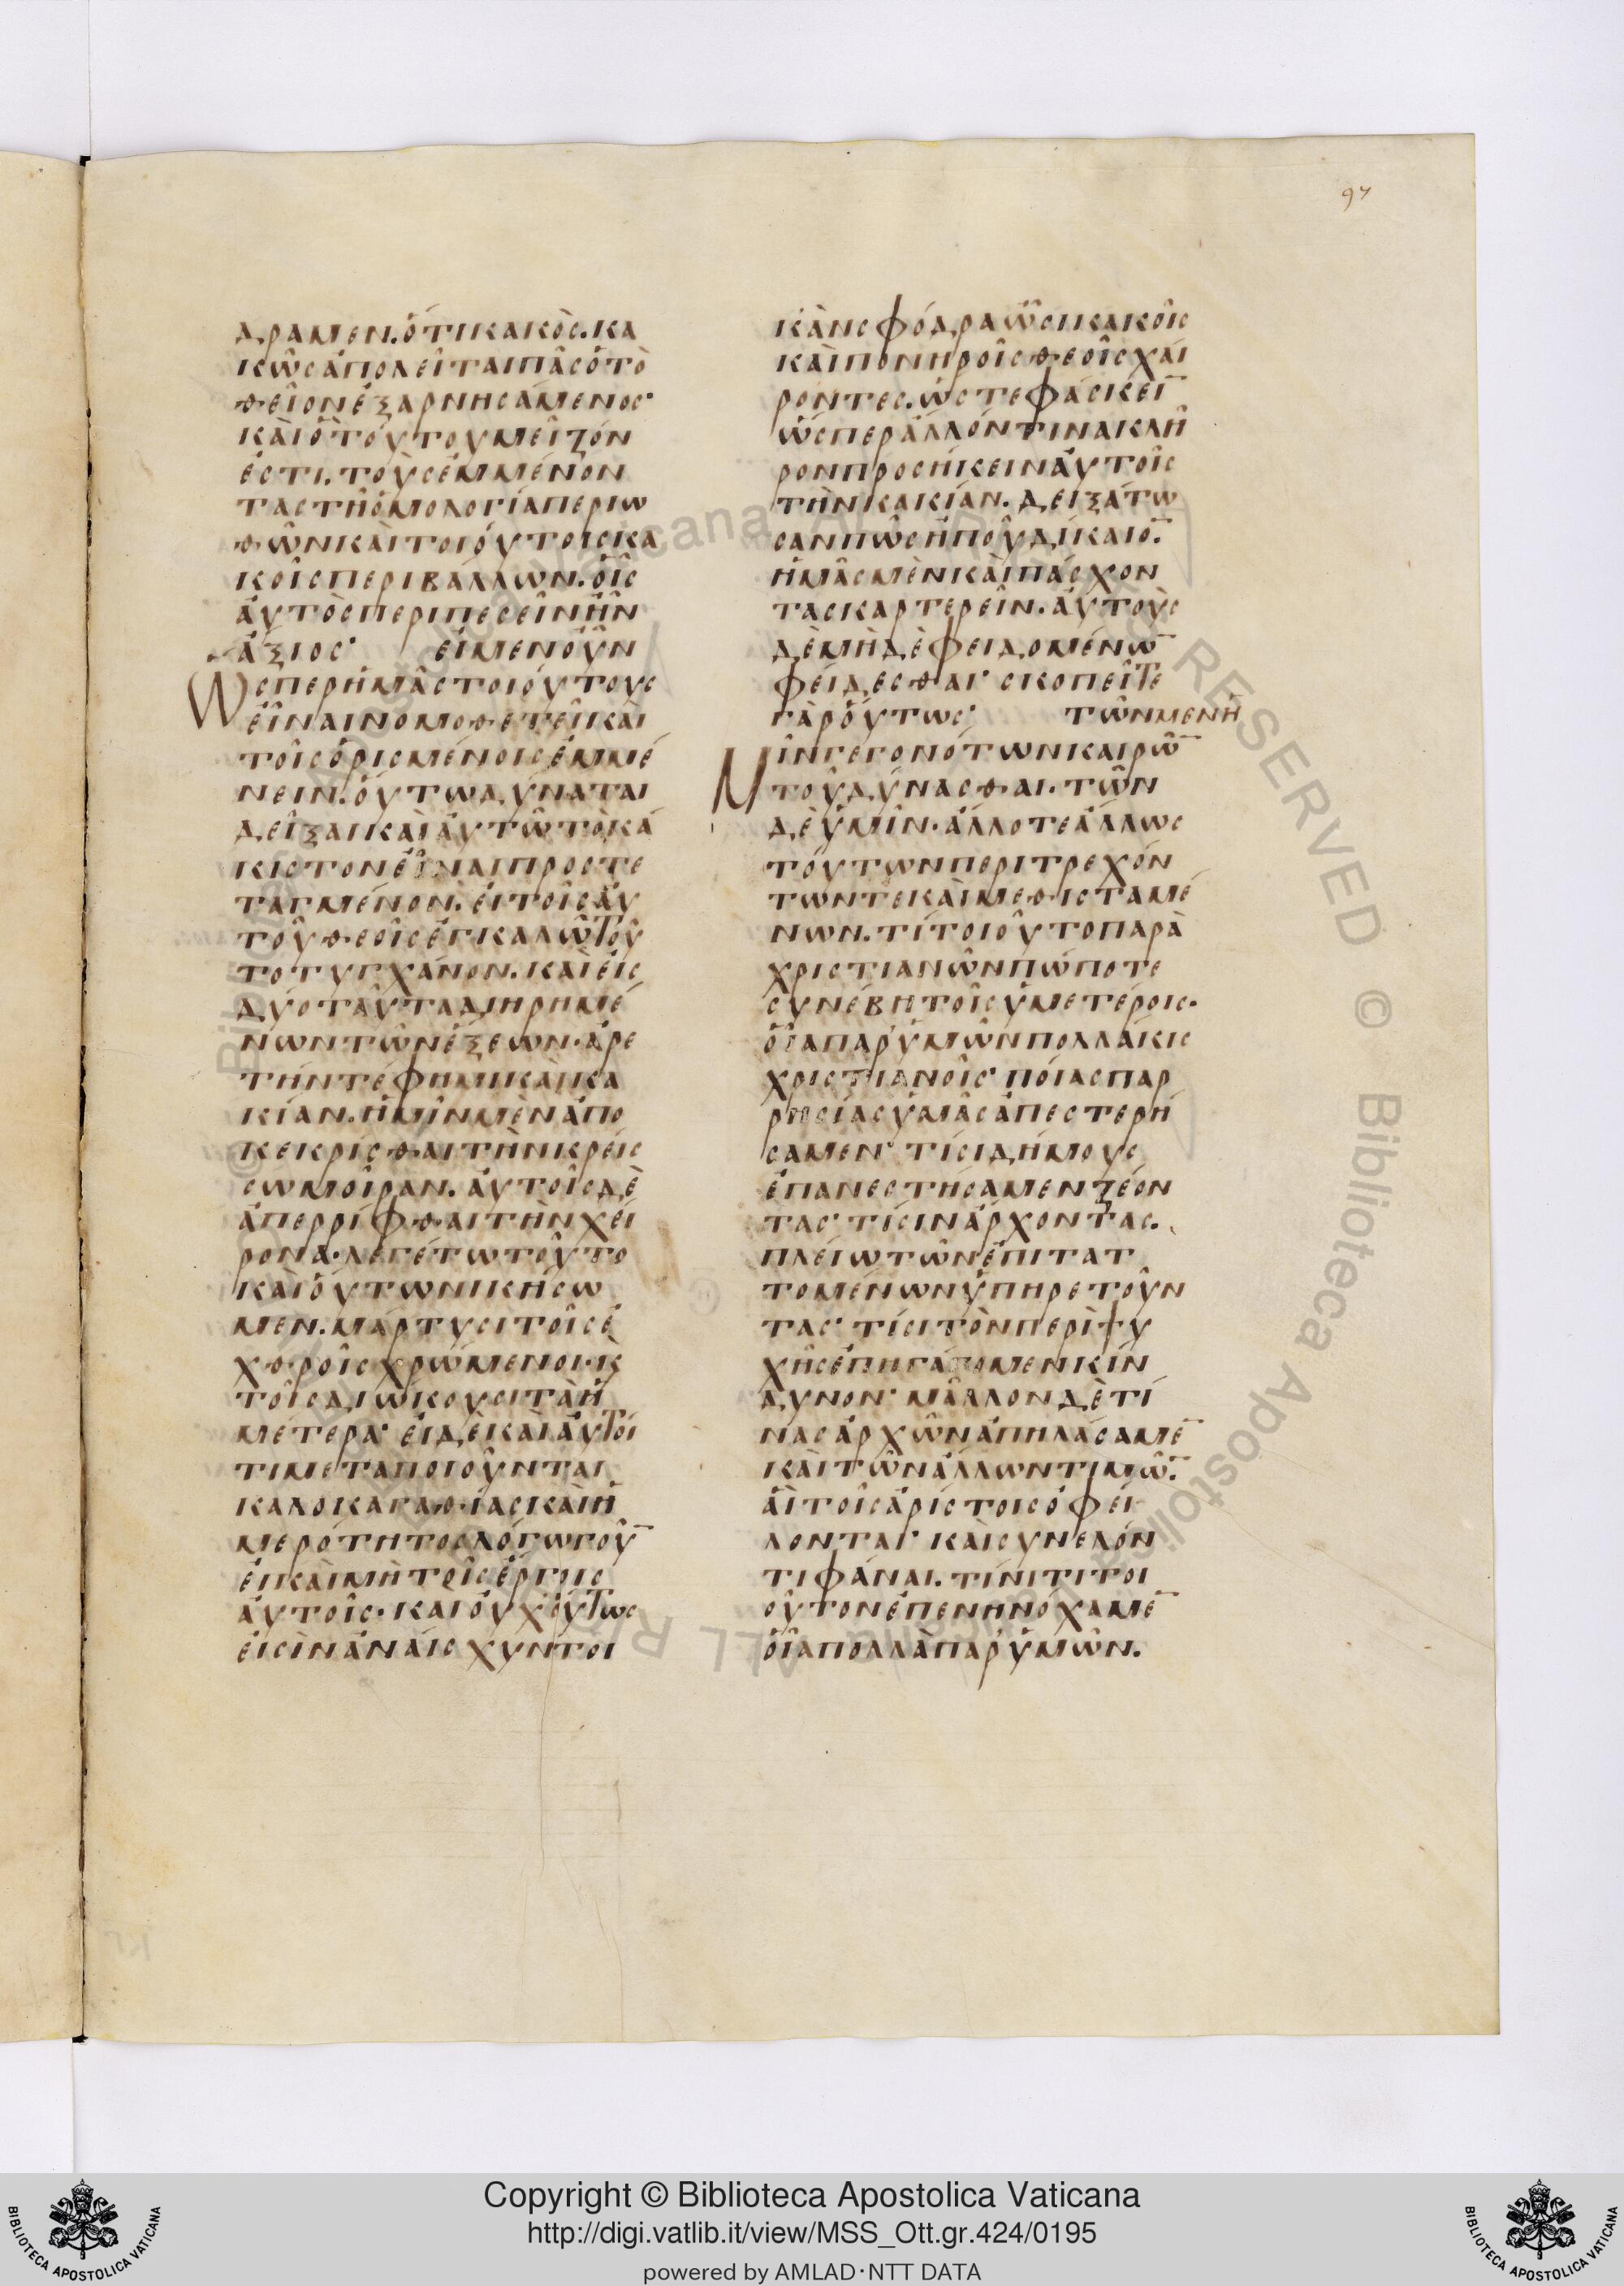 97
δραμεν. ὅτι κακὸς. κα
κῶς ἀπολεῖται πᾶς ὁ τὸ
θεῖον ἐξαρνησάμενος·
καὶ ὃ τούτου μεῖζόν
ἐστι. τοὺς ἐμμένον
τας τῆ ὁμολογία περιω
θῶν καὶ τοιούτοις κα
κοῖς περιβάλλων. οἷς
αὐτὸς περιπεσεῖν ἦν
ἄξιος· εἰ μὲν οὖν
Ὥσπερ ἡμᾶς τοιούτους
εἶναι νομοθετεῖ καὶ
τοῖς ὁρισμένοις ἐμμέ
νειν. οὕτω δύναται
δεῖξαι καὶ αὐτῶ τὸ κά
κιστον εἶναι προστε
ταγμένον. εἰ τοῖς αὐ
τοῦ θεοῖς ἐγκαλῶ τοῦ
το τυγχάνον. καὶ εἰς
δύο ταῦτα διηρημέ
νων τῶν ἕξεων· ἀρε
τήν τέ φημι καὶ κα
κίαν. ἡμῖν μὲν ἀπο
κεκρίσθαι τὴν κρείς
σω μοῖραν. αὐτοῖς δὲ
ἀπερρίφθαι τὴν χεί
ρονα· λεγέτω τοῦτο
καὶ οὕτω νικήσω
μεν. μάρτυσι τοῖς ἐ
χθροῖς χρώμενοι· κ
τοῖς διώκουσι τὰ ἡ
μέτερα· εἰ δὲ καὶ αὐτοί
τι μεταποιοῦνται
καλοκαγαθίας καὶ ἡ
μερότητος λόγω γοῦ‾
εἰ καὶ μὴ τοῖς ἔργοις
αὐτοῖς· καὶ οὐχ οὕτως
εἰσὶν ἀναίσχυντοι
κἂν σφόδρα ὦσι κακοῖς
καὶ πονηροῖς θεοῖς χαί
ροντες. ὥστε φάσκει‾
ὥσπερ ἄλλόν τινα κλῆ
ρον προσήκειν αὐτοῖς
τὴν κακίαν. δειξάτω
σαν πῶς ἢ ποῦ δίκαιο‾.
ἡμᾶς μὲν καὶ πάσχον
τας καρτερεῖν. αὐτοὺς
δὲ μὴ δὲ φειδομένω‾
φείδεσθαι· σκοπεῖτε
γὰρ οὕτως· τῶν μὲν ἡ
Μῖν γεγονότων καιρῶ‾
τοῦ δύνασθαι. τῶν
δὲ ὑμῖν· ἄλλοτε ἄλλως
τούτων περιτρεχόν
των τε καὶ μεθισταμέ
νων. τί τοιοῦτο παρὰ
χριστιανῶν πώποτε
συνέβη τοῖς ὑμετέροις·
οἷα παρ' ὑμῶν πολλάκις
χριστιανοῖς· ποίας παρ
ρησίας ὑμᾶς ἀπεστερή
σαμεν· τίσι δήμους
ἐπανεστήσαμεν ζέον
τας· τίσιν ἄρχοντας.
πλείω τῶν ἐπιτατ
τομένων ὑπηρετοῦν
τας· τίσι τὸν περὶ ψυ
χῆς ἐπηγάγομεν κίν
δυνον· μᾶλλον δὲ τί
νας ἀρχῶν ἀπηλάσαμε‾
καὶ τῶν ἄλλων τιμῶ‾.
αἳ τοῖς ἀρίστοις ὀφεί
λονται· καὶ συνελόν
τι φάναι. τίνι τι τοι
οῦτον ἐπενηνόχαμε‾
οἷα πολλὰ παρ' ὑμῶν.
Copyright © Biblioteca Apostolica Vaticana
http://digi.vatlib.it/view/MSS_Ott.gr.424/0195
powered by AMLAD·NTT DATA